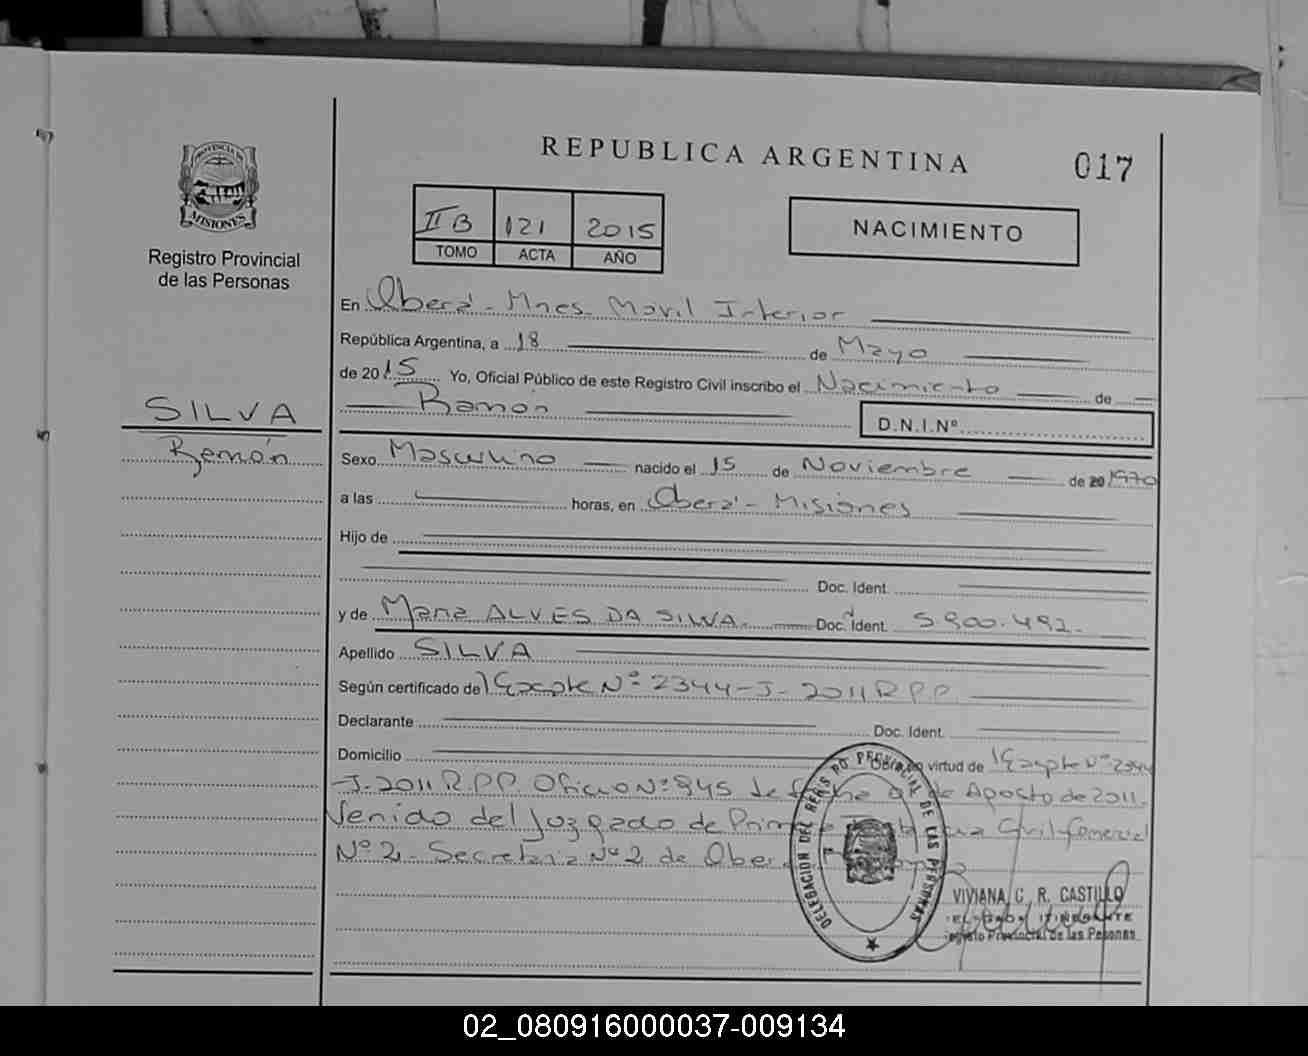 REPUBLICA ARGENTINA
017
PROVINCIA DE
MISIONES
Registro Provincial
de las Personas
II B 121 2015
TOMO ACTA AÑO
NACIMIENTO
En Oberá - Mnes. Movil Interior
República Argentina, a 18 de Mayo
de 2015 Yo, Oficial Público de este Registro Civil inscribo el Nacimiento de
Ramón
D.N.I.Nº
SILVA
Ramón
Sexo Masculino nacido el 15 de Noviembre de 20 1970
a las horas, en Oberá - Misiones
Hijo de
Doc. Ident.
y de Maria ALVES DA SILVA. Doc. Ident. 5.900.492.
Apellido SILVA
Según certificado de Expte Nº 2344-J-2011 R.P.P.
Declarante Doc. Ident.
Domicilio Obra en virtud de Expte Nº 2344
J-2011 R.P.P. Oficio Nº 845 de fecha de Agosto de 2011.
Venido del Juzgado de Primera Civil Comercial
Nº 2 - Secretaria Nº 2 de Oberá
DELEGACION DEL REGISTRO PROVINCIAL DE LAS PERSONAS
VIVIANA C. R. CASTILLO
ITINERANTE
Registro Provincial de las Personas
02_080916000037-009134